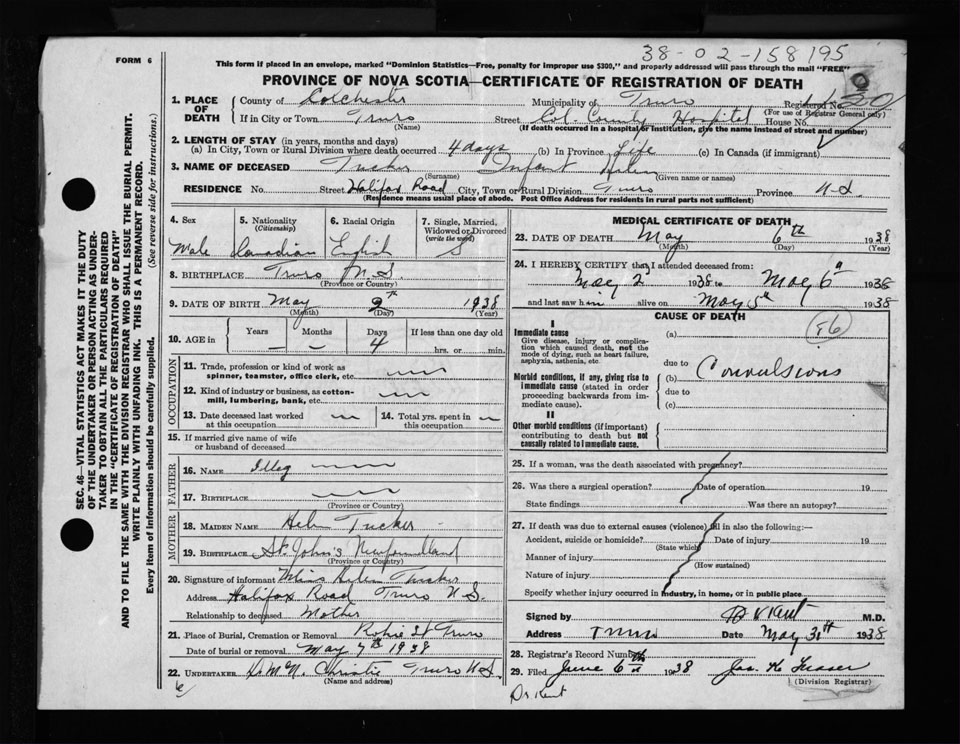 38-02-158195
FORM 6
This form if placed in an envelope, marked "Dominion Statistics—Free, penalty for improper use $300," and properly addressed will pass through the mail "FREE"
PROVINCE OF NOVA SCOTIA—CERTIFICATE OF REGISTRATION OF DEATH
1. PLACE OF DEATH County of Colchester Municipality of Truro Registered No.
(For use of Registrar General only)
If in City or Town Truro Street Col. County Hospital House No.
(Name) (If death occurred in a hospital or institution, give the name instead of street and number)
2. LENGTH OF STAY (in years, months and days)
(a) In City, Town or Rural Division where death occurred 4 days (b) In Province Life (c) In Canada (if immigrant)
3. NAME OF DECEASED Tucker Infant
(Surname) (Given name or names)
RESIDENCE No. Street Halifax Road City, Town or Rural Division Truro Province N.S
(Residence means usual place of abode. Post Office Address for residents in rural parts not sufficient)
4. Sex 5. Nationality (Citizenship) 6. Racial Origin 7. Single, Married, Widowed or Divorced (write the word)
Male Canadian English S
8. BIRTHPLACE Truro N.S.
(Province or County)
9. DATE OF BIRTH May 2nd 1938
(Month) (Day) (Year)
10. AGE in Years Months Days If less than one day old
— — 4 hrs. or min.
OCCUPATION
11. Trade, profession or kind of work as spinner, teamster, office clerk, etc.
12. Kind of industry or business, as cotton-mill, lumbering, bank, etc.
13. Date deceased last worked at this occupation 14. Total yrs. spent in this occupation
15. If married give name of wife or husband of deceased
FATHER
16. NAME Illeg
17. BIRTHPLACE
(Province or Country)
MOTHER
18. MAIDEN NAME Helen Tucker
19. BIRTHPLACE St. John's Newfoundland
(Province or Country)
20. Signature of informant Miss Helen Tucker
Address Halifax Road Truro N.S.
Relationship to deceased Mother
21. Place of Burial, Cremation or Removal Robie St Truro
Date of burial or removal May 7th 1938
22. UNDERTAKER Christie Truro N.S.
(Name and address)
6
MEDICAL CERTIFICATE OF DEATH
23. DATE OF DEATH May 6th 1938
(Month) (Day)
24. I HEREBY CERTIFY that I attended deceased from:
May 2 1938 to May 6" 1938
and last saw him alive on May 5th 1938
CAUSE OF DEATH
I
Immediate cause
Give disease, injury or complication which caused death, not the mode of dying, such as heart failure, asphyxia, asthenia, etc.
(a)
due to
86
Morbid conditions, if any, giving rise to immediate cause (stated in order proceeding backwards from immediate cause).
(b) Convulsions
due to
(c)
II
Other morbid conditions (if important) contributing to death but not causally related to immediate cause.
25. If a woman, was the death associated with pregnancy?
26. Was there a surgical operation? Date of operation 19
State findings Was there an autopsy?
27. If death was due to external causes (violence) fill in also the following:—
Accident, suicide or homicide? Date of injury 19
(State which)
Manner of injury
(How sustained)
Nature of injury
Specify whether injury occurred in industry, in home, or in public place
Signed by Kent M.D.
Address Truro Date May 31th 1938
28. Registrar's Record Number
29. Filed June 6th 1938 Jas. H. Fraser
(Division Registrar)
Dr Kent
SEC. 46—VITAL STATISTICS ACT MAKES IT THE DUTY
OF THE UNDERTAKER OR PERSON ACTING AS UNDER-
TAKER TO OBTAIN ALL THE PARTICULARS REQUIRED
IN THE "CERTIFICATE OF REGISTRATION OF DEATH"
AND TO FILE THE SAME WITH THE DIVISION REGISTRAR WHO SHALL ISSUE THE BURIAL PERMIT.
WRITE PLAINLY WITH UNFADING INK. THIS IS A PERMANENT RECORD.
Every item of information should be carefully supplied. (See reverse side for instructions.)